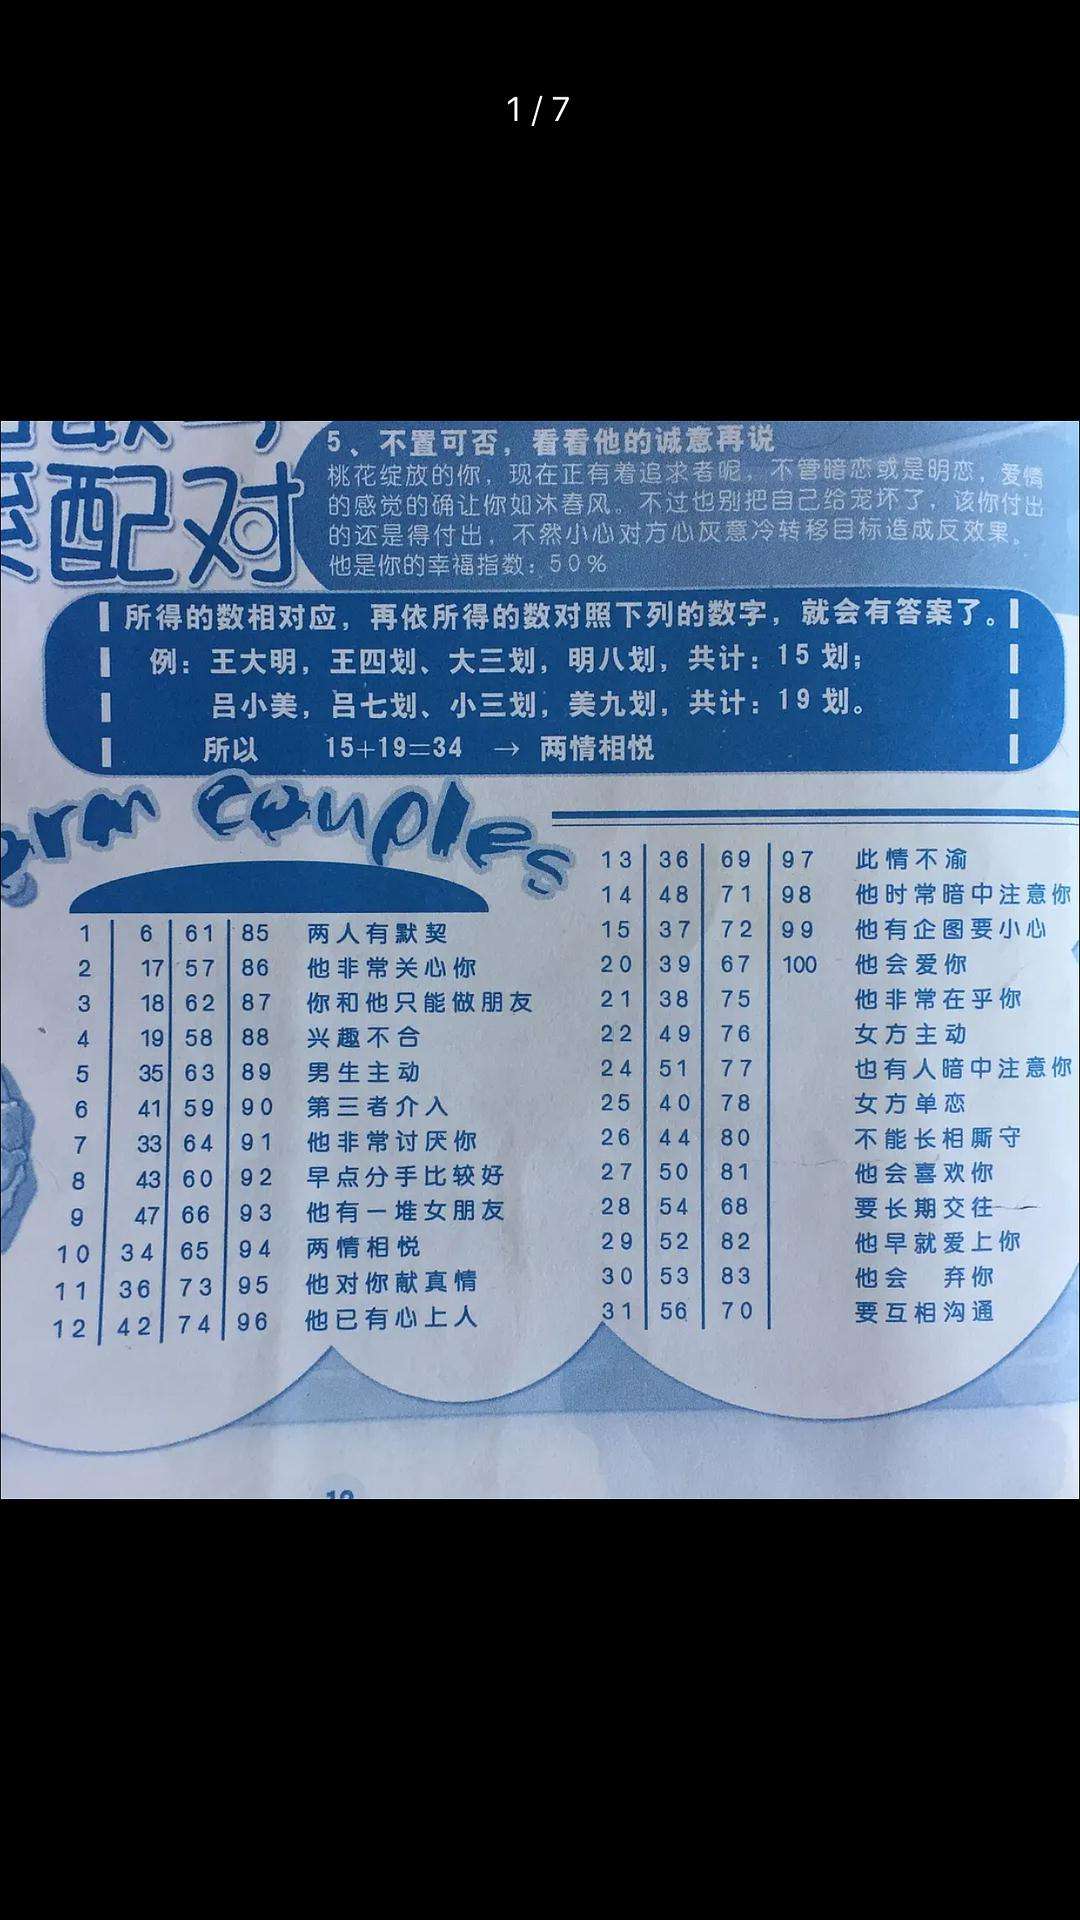 1/7
配对
5、不置可否，看看他的诚意再说
桃花绽放的你，现在正有着追求者呢，不管暗恋或是明恋，爱情
的感觉的确让你如沐春风。不过也别把自己给宠坏了，该你付出
的还是得付出，不然小心对方心灰意冷转移目标造成反效果。
他是你的幸福指数：50%
所得的数相对应，再依所得的数对照下列的数字，就会有答案了。
例：王大明，王四划、大三划，明八划，共计：15划；
吕小美，吕七划、小三划，美九划，共计：19划。
所以 15+19=34 → 两情相悦
arm couples
1 6 61 85 两人有默契
2 17 57 86 他非常关心你
3 18 62 87 你和他只能做朋友
4 19 58 88 兴趣不合
5 35 63 89 男生主动
6 41 59 90 第三者介入
7 33 64 91 他非常讨厌你
8 43 60 92 早点分手比较好
9 47 66 93 他有一堆女朋友
10 34 65 94 两情相悦
11 36 73 95 他对你献真情
12 42 74 96 他已有心上人
13 36 69 97 此情不渝
14 48 71 98 他时常暗中注意你
15 37 72 99 他有企图要小心
20 39 67 100 他会爱你
21 38 75 他非常在乎你
22 49 76 女方主动
24 51 77 也有人暗中注意你
25 40 78 女方单恋
26 44 80 不能长相厮守
27 50 81 他会喜欢你
28 54 68 要长期交往
29 52 82 他早就爱上你
30 53 83 他会 弃你
31 56 70 要互相沟通